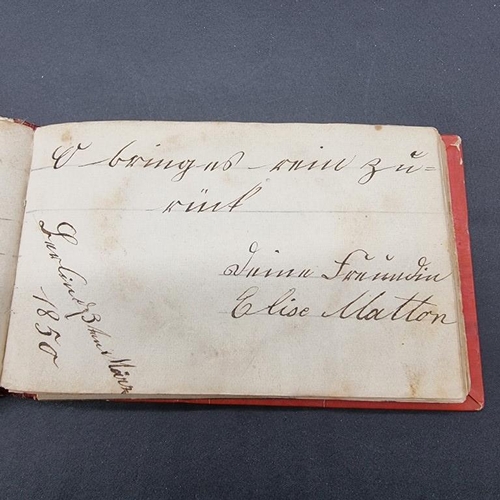 O bringes rein zu=
rück
Deine Freundin
Elise Matton
Berlin d 3ten März
1850